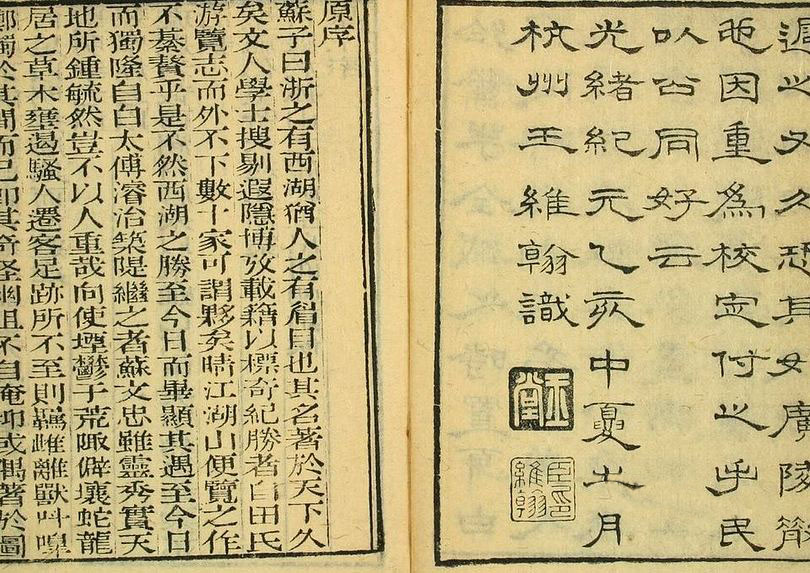 之又久恐其如廣陵散
也因重為校定付之手民
以公同好云
光緒紀元乙亥中夏之月
杭州王維翰識
臣印維翰
原序
蘇子曰浙之有西湖猶人之有眉目也其名著於天下久
矣文人學士搜剔遐隱博攷載籍以標奇紀勝者自田氏
游覽志而外不下數十家可謂夥矣晴江湖山便覽之作
不綦贅乎是不然西湖之勝至今日而畢顯其遇至今日
而獨隆自白太傅濬治築隄繼之者蘇文忠雖靈秀實天
地所鍾毓然豈不以人重哉向使堙鬱于荒陬僻壤蛇龍
居之草木壅遏騷人遷客足跡所不至則羈雌離獸艸嘷
於其間而已即其奇怪幽 不自掩抑或偶著於圖